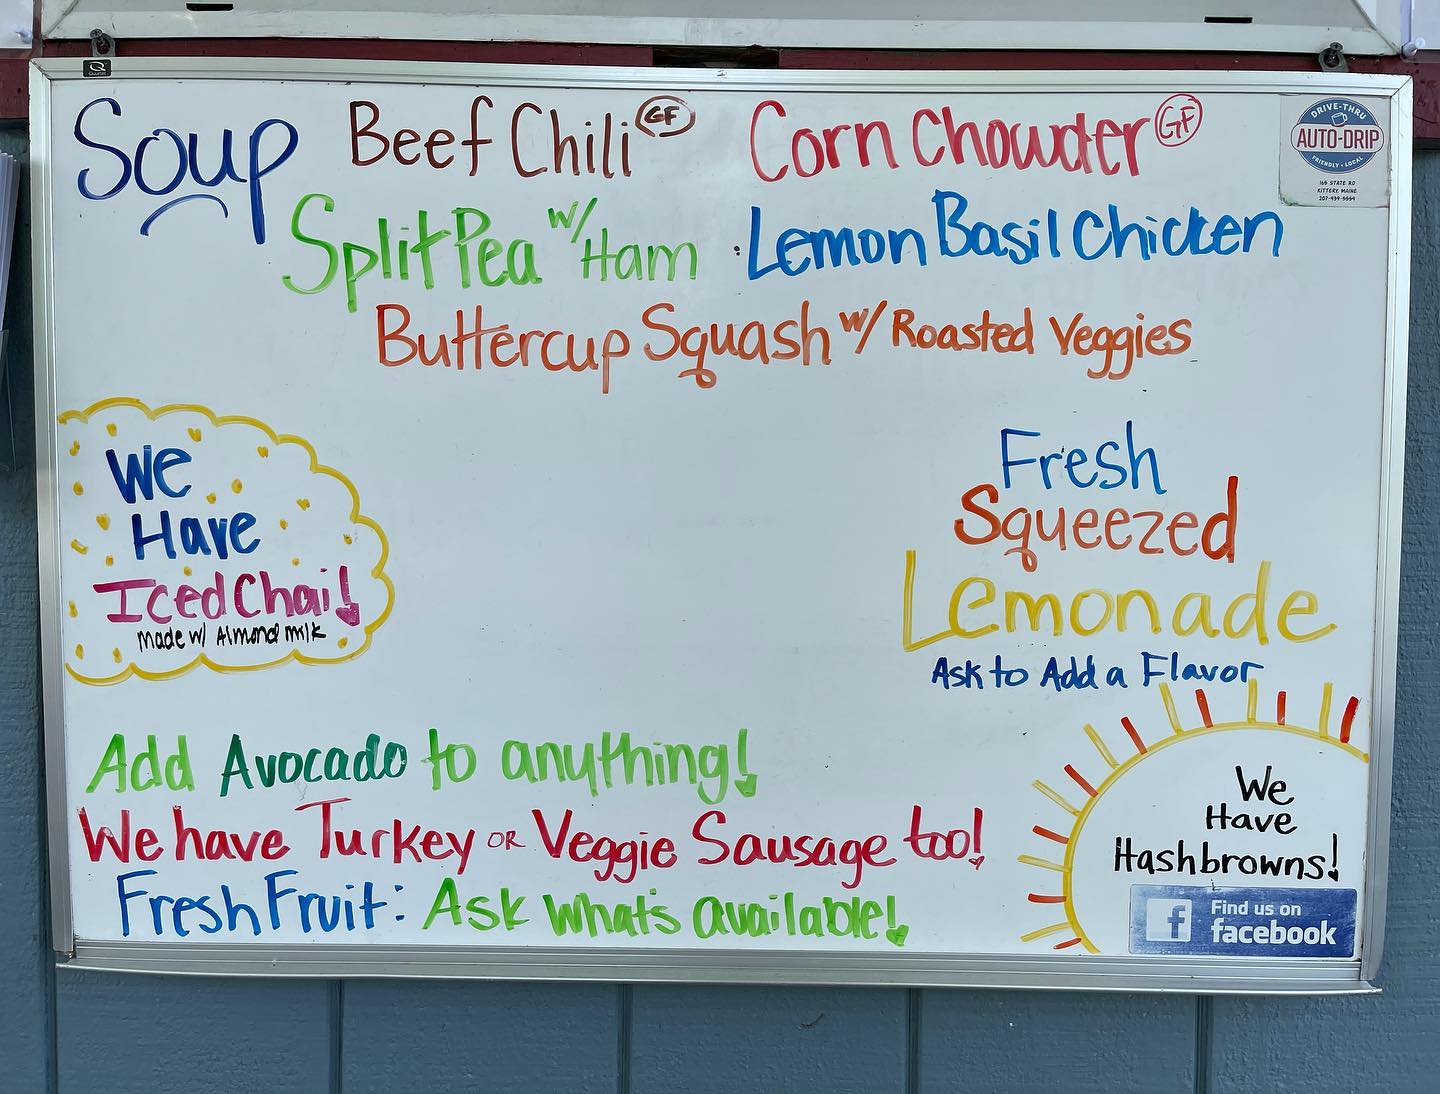 Soup
Beef Chili GF
Corn Chowder GF
Split Pea w/ Ham
Lemon Basil Chicken
Buttercup Squash w/ Roasted Veggies
DRIVE-THRU
AUTO-DRIP
FRIENDLY • LOCAL
165 STATE RD
KITTERY, MAINE
We
Have
Iced Chai!
made w/ Almond milk
Fresh
Squeezed
Lemonade
Ask to Add a Flavor
Add Avocado to anything!
We have Turkey OR Veggie Sausage too!
Fresh Fruit: Ask what's available!
We
Have
Hashbrowns!
f
Find us on
facebook